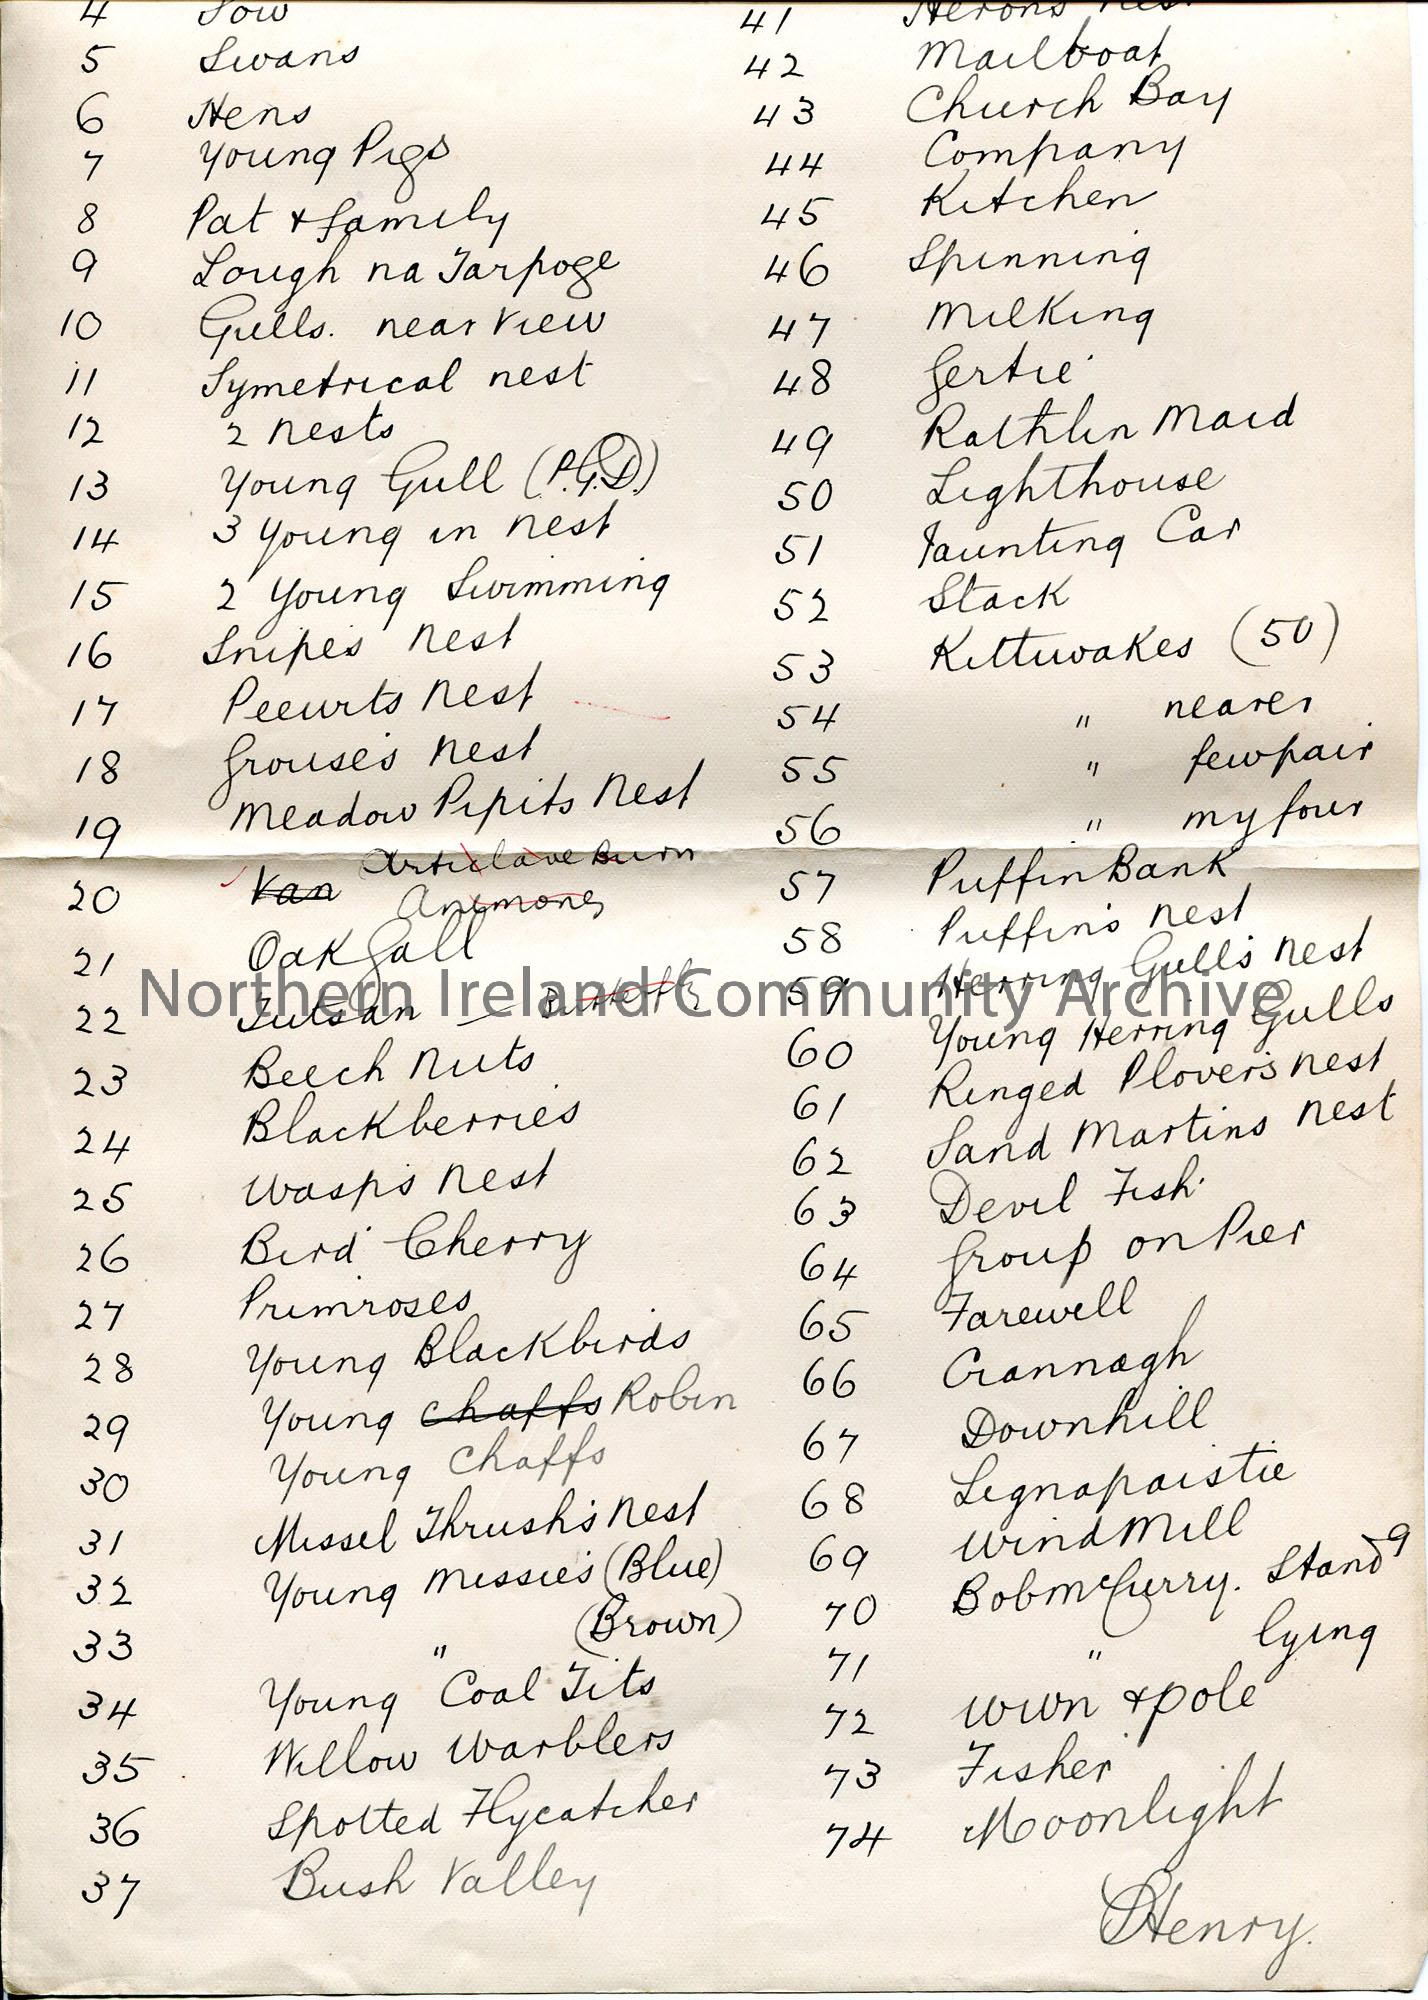 4 Sow
5 Swans
6 Hens
7 Young Pigs
8 Pat & family
9 Lough na Tarpoge
10 Gulls. near view
11 Symetrical nest
12 2 nests
13 Young Gull (P.G.D.)
14 3 Young in nest
15 2 Young Swimming
16 Snipe's nest
17 Peewits nest
18 Grouse's nest
19 Meadow Pipits nest
20 Van Articlave Burn
Anemones
21 Oak Gall
22 Tutsan – Butterfly
23 Beech nuts
24 Blackberries
25 Wasp's nest
26 Bird Cherry
27 Primroses
28 Young Blackbirds
29 Young Chaffs Robin
30 Young Chaffs
31 Missel Thrush's nest
32 Young missie's (Blue)
33 " (Brown)
34 Young Coal Tits
35 Willow Warblers
36 Spotted Flycatcher
37 Bush Valley
41 Herons nest
42 Mailboat
43 Church Bay
44 Company
45 Kitchen
46 Spinning
47 Milking
48 Gertie
49 Rathlin Maid
50 Lighthouse
51 Jaunting Car
52 Stack
53 Kittiwakes (50)
54 " nearer
55 " few pair
56 " my four
57 Puffin Bank
58 Puffin's nest
59 Herring Gull's nest
60 Young Herring Gulls
61 Ringed Plover's nest
62 Sand Martins nest
63 Devil Fish
64 Group on Pier
65 Farewell
66 Crannagh
67 Downhill
68 Legnapaistie
69 Windmill
70 Bob McCurry. Standg
71 " lying
72 Win & pole
73 Fisher
74 Moonlight
SHenry.
Northern Ireland Community Archive